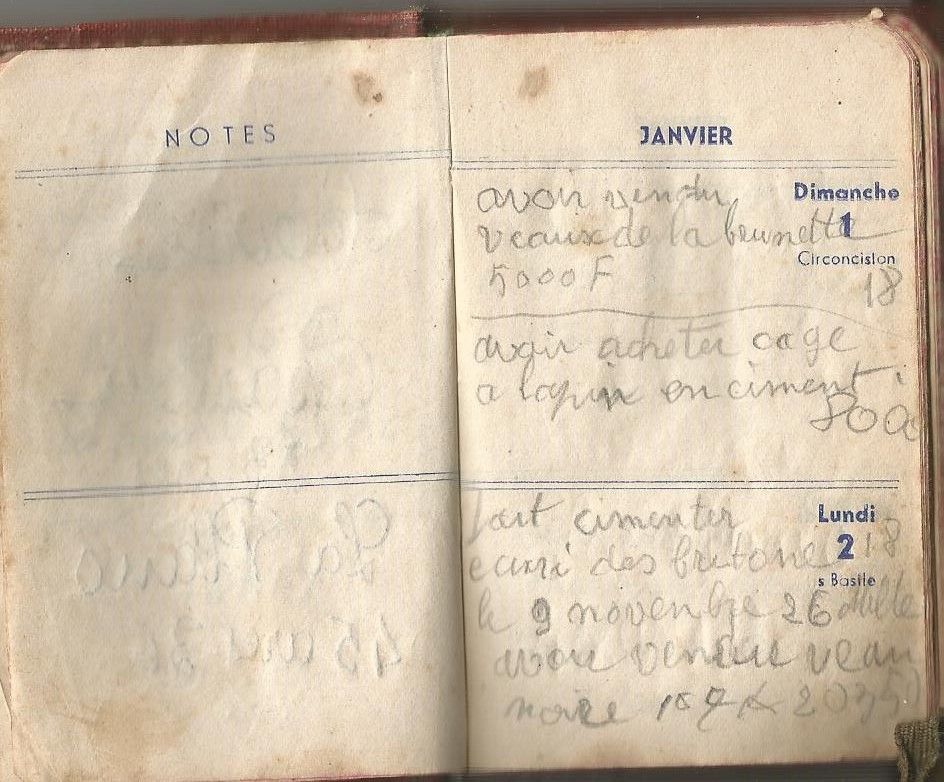 NOTES
JANVIER
Dimanche
1
Circoncision
avoir vendu
veaux de la brunette
5000F
18
avoir acheter cage
a lapin en ciment
800
Lundi
2
s Basile
fait cimenter
ecurri des bretone
18
le 9 novenbre 26
avoir vendue veau
noire